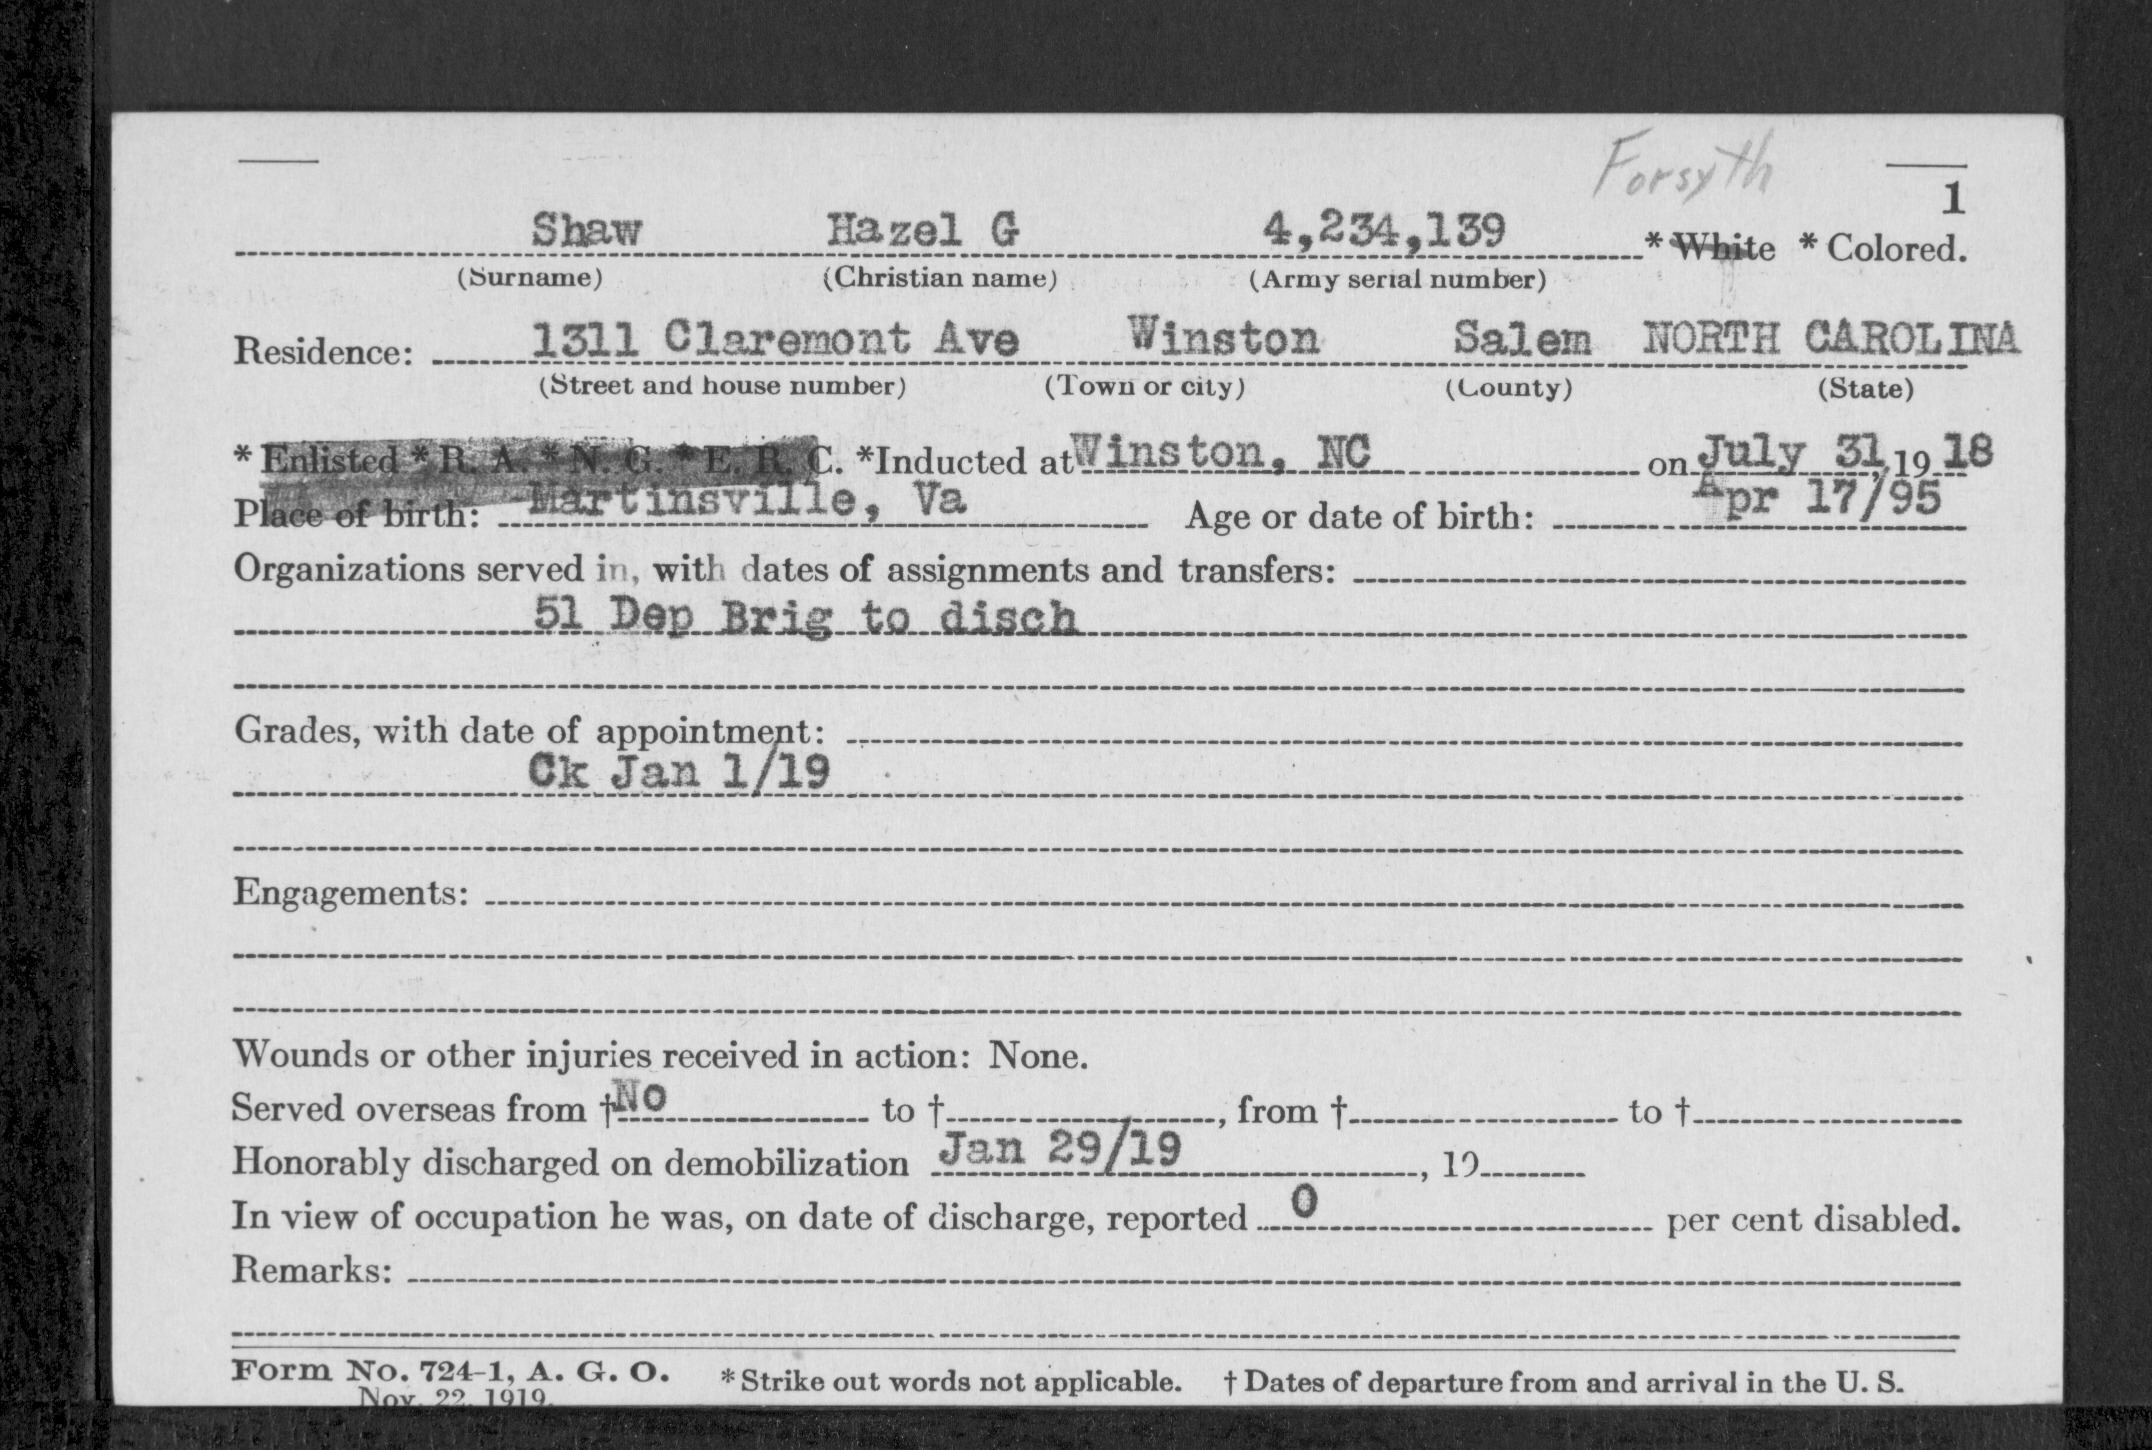 Forsyth
1
Shaw Hazel G 4,234,139 * White * Colored.
(Surname) (Christian name) (Army serial number)
Residence: 1311 Claremont Ave Winston Salem NORTH CAROLINA
(Street and house number) (Town or city) (County) (State)
* Enlisted * R. A. * N. G. * E. R. C. *Inducted at Winston, NC on July 31, 19 18
Place of birth: Martinsville, Va Age or date of birth: Apr 17/95
Organizations served in, with dates of assignments and transfers:
51 Dep Brig to disch
Grades, with date of appointment:
Ck Jan 1/19
Engagements:
Wounds or other injuries received in action: None.
Served overseas from † No to †, from † to †
Honorably discharged on demobilization Jan 29/19, 19
In view of occupation he was, on date of discharge, reported 0 per cent disabled.
Remarks:
Form No. 724-1, A. G. O. * Strike out words not applicable. † Dates of departure from and arrival in the U. S.
Nov. 22, 1919.